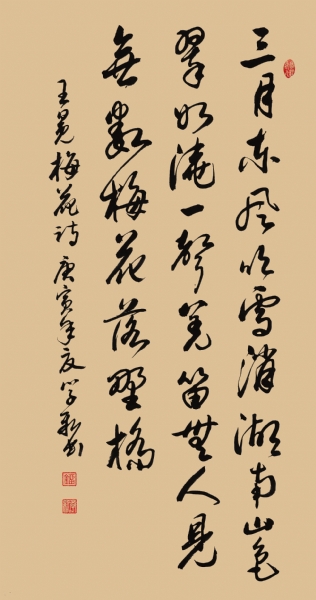 三月东风吹雪消湖南山色
翠如浇一聲羌笛無人見
無數梅花落野橋
王冕梅花诗 庚寅年夏学